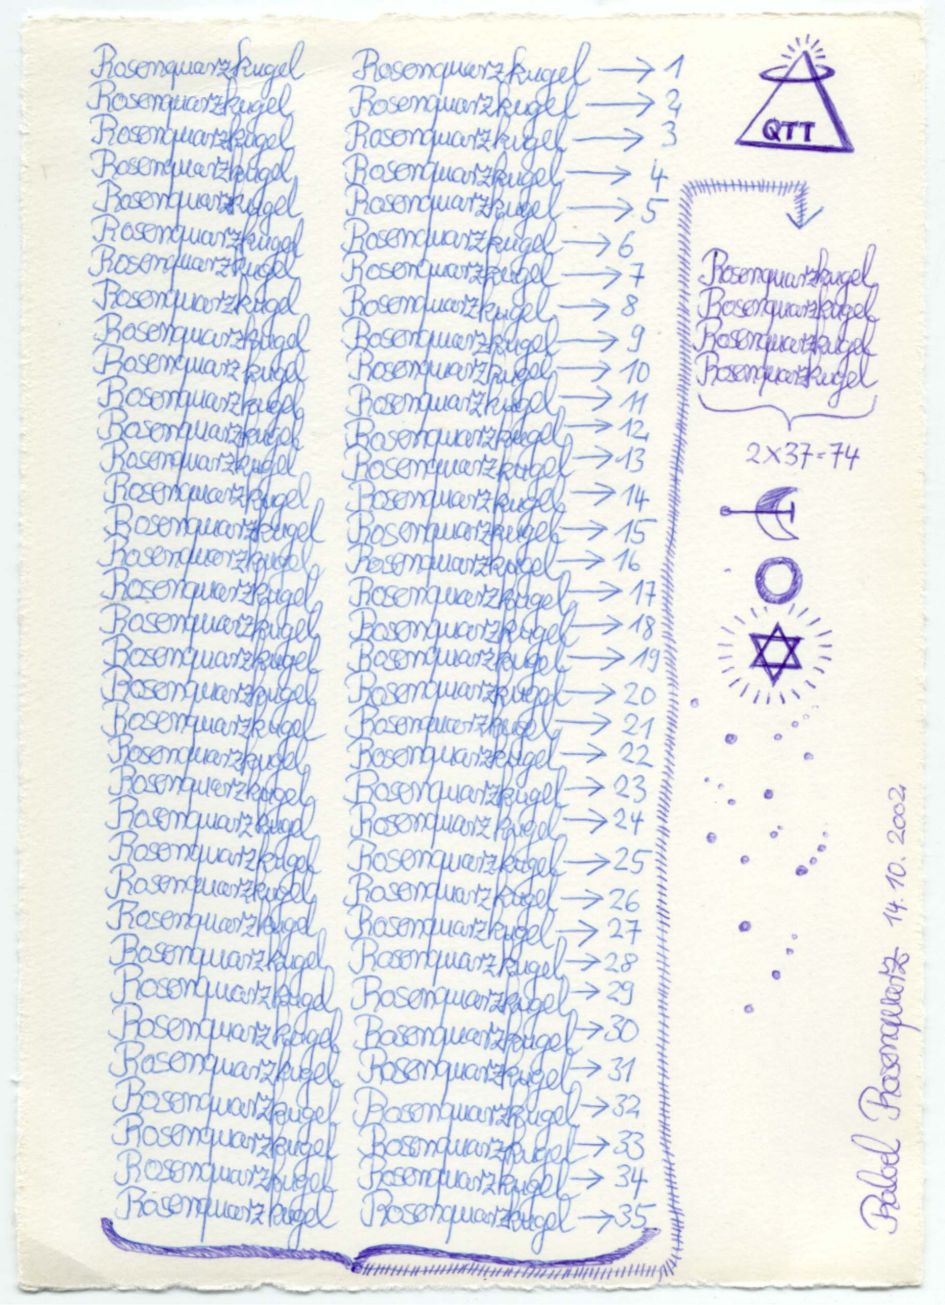 Rosenquarzkugel Rosenquarzkugel → 1
Rosenquarzkugel Rosenquarzkugel → 2
Rosenquarzkugel Rosenquarzkugel → 3
Rosenquarzkugel Rosenquarzkugel → 4
Rosenquarzkugel Rosenquarzkugel → 5
Rosenquarzkugel Rosenquarzkugel → 6
Rosenquarzkugel Rosenquarzkugel → 7
Rosenquarzkugel Rosenquarzkugel → 8
Rosenquarzkugel Rosenquarzkugel → 9
Rosenquarzkugel Rosenquarzkugel → 10
Rosenquarzkugel Rosenquarzkugel → 11
Rosenquarzkugel Rosenquarzkugel → 12
Rosenquarzkugel Rosenquarzkugel → 13
Rosenquarzkugel Rosenquarzkugel → 14
Rosenquarzkugel Rosenquarzkugel → 15
Rosenquarzkugel Rosenquarzkugel → 16
Rosenquarzkugel Rosenquarzkugel → 17
Rosenquarzkugel Rosenquarzkugel → 18
Rosenquarzkugel Rosenquarzkugel → 19
Rosenquarzkugel Rosenquarzkugel → 20
Rosenquarzkugel Rosenquarzkugel → 21
Rosenquarzkugel Rosenquarzkugel → 22
Rosenquarzkugel Rosenquarzkugel → 23
Rosenquarzkugel Rosenquarzkugel → 24
Rosenquarzkugel Rosenquarzkugel → 25
Rosenquarzkugel Rosenquarzkugel → 26
Rosenquarzkugel Rosenquarzkugel → 27
Rosenquarzkugel Rosenquarzkugel → 28
Rosenquarzkugel Rosenquarzkugel → 29
Rosenquarzkugel Rosenquarzkugel → 30
Rosenquarzkugel Rosenquarzkugel → 31
Rosenquarzkugel Rosenquarzkugel → 32
Rosenquarzkugel Rosenquarzkugel → 33
Rosenquarzkugel Rosenquarzkugel → 34
Rosenquarzkugel Rosenquarzkugel → 35
QTT
Rosenquarzkugel
Rosenquarzkugel
Rosenquarzkugel
Rosenquarzkugel
2X37=74
Rosenquarz 14.10.2002